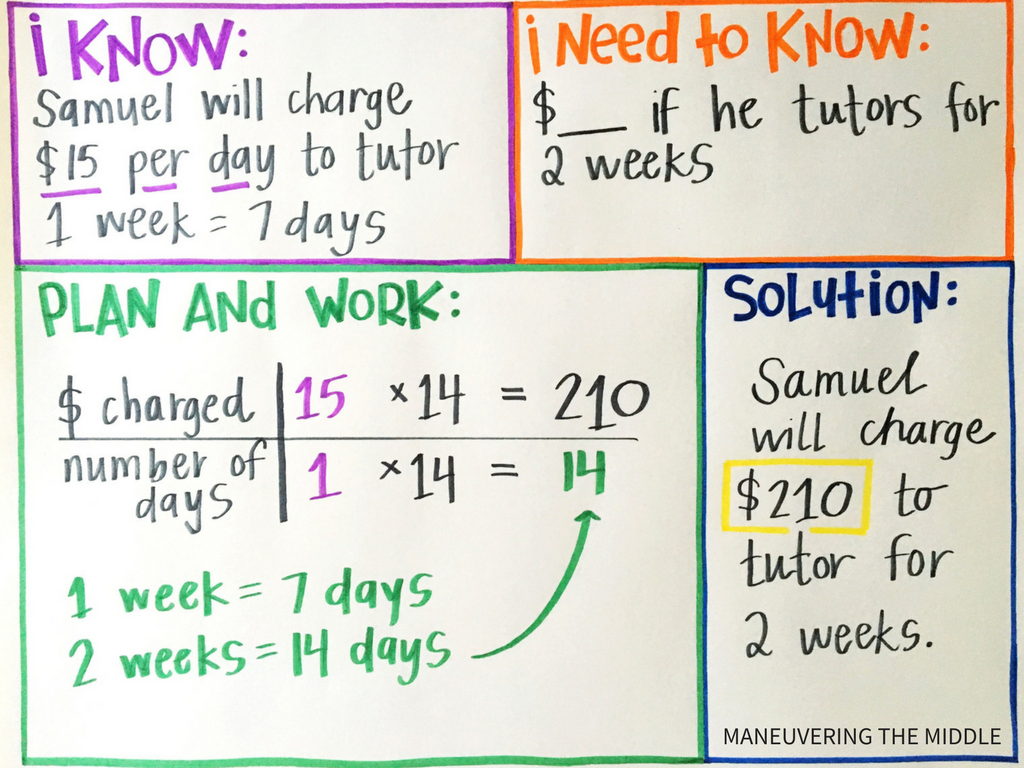 i KNOW:
Samuel will charge
$15 per day to tutor
1 week = 7 days
i Need to KNOW:
$__ if he tutors for
2 weeks
PLAN ANd WORK:
$ charged 15 ×14 = 210
number of days 1 ×14 = 14
1 week = 7 days
2 weeks = 14 days
SOLUtiON:
Samuel
will charge
$210 to
tutor for
2 weeks.
MANEUVERING THE MIDDLE